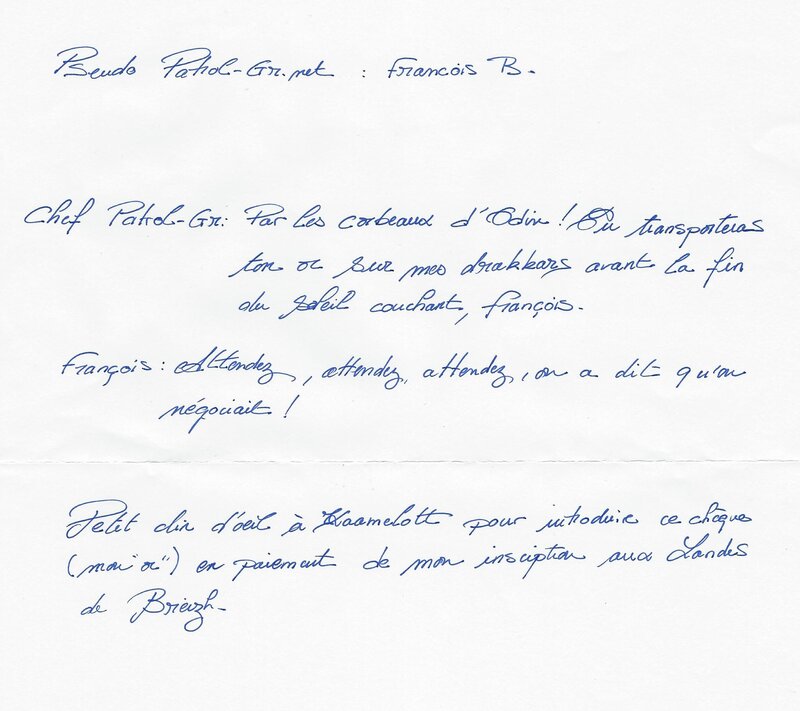 Pseudo Patrol-Gr.net : François B.
Chef Patrol-Gr: Par les corbeaux d'Odin ! Tu transporteras
ton or sur mes drakkars avant la fin
du soleil couchant, françois.
François : Attendez, attendez, attendez, on a dit qu'on
négociait !
Petit clin d'oeil à Kaamelott pour introduire ce chèque
(mon "or") en paiement de mon insciption aux Landes
de Brieizh.